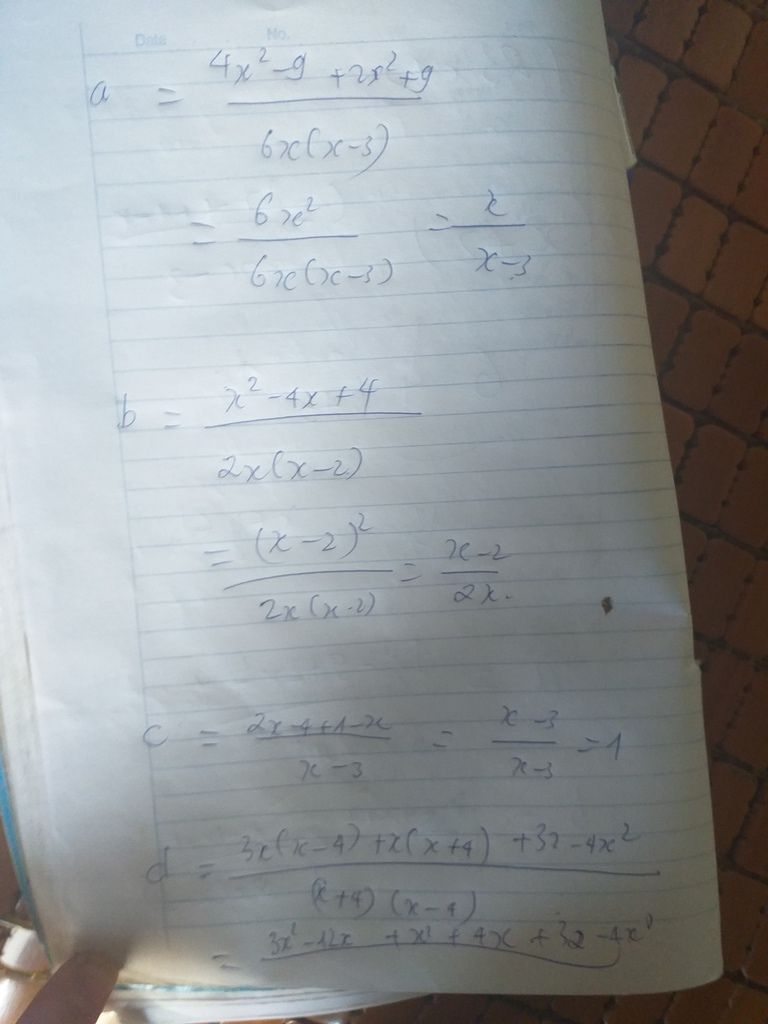 Date No.
a = (4x² - 9 + 2x² + 9) / (6x(x-3))
= 6x² / (6x(x-3)) = x / (x-3)
b = (x² - 4x + 4) / (2x(x-2))
= (x-2)² / (2x(x-2)) = (x-2) / 2x.
c = (2x-4+1-x) / (x-3) = (x-3) / (x-3) = 1
d = (3x(x-4) + x(x+4) + 32 - 4x²) / ((x+4)(x-4))
= 3x² - 12x + x² + 4x + 32 - 4x²